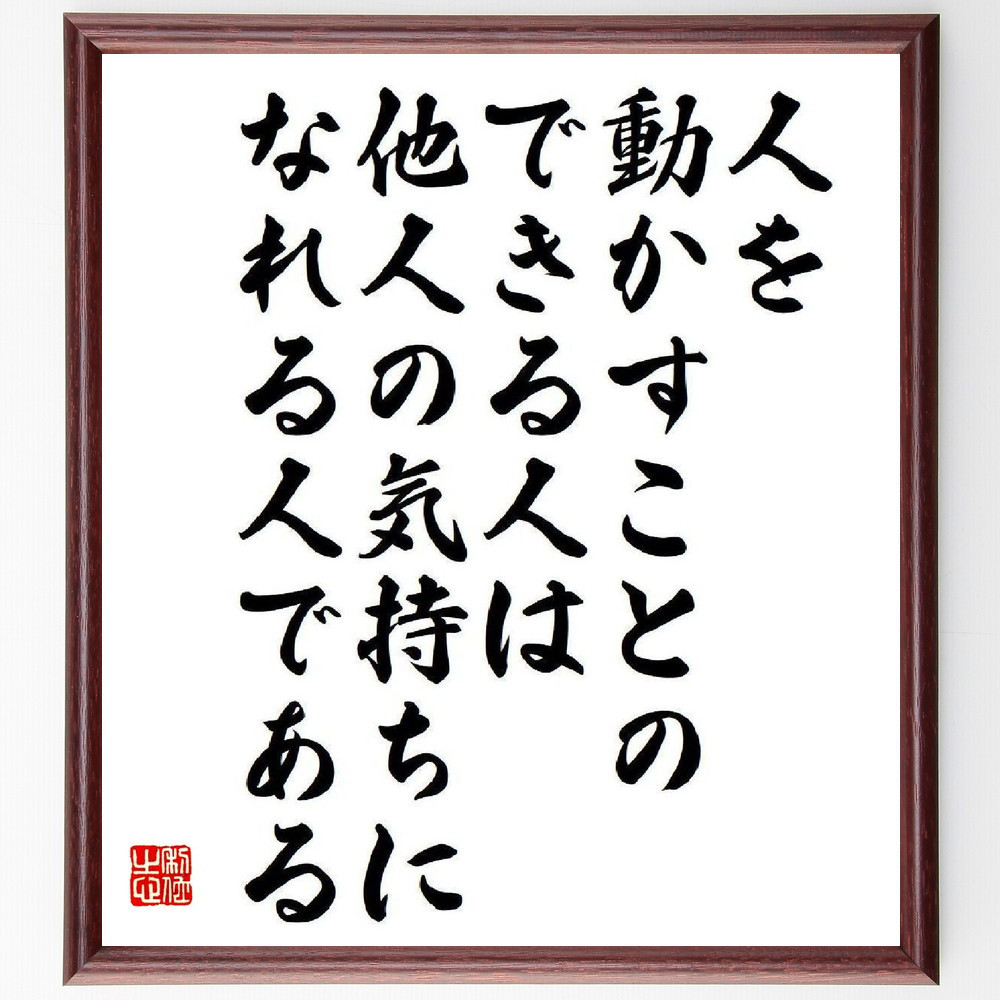 人を
動かすことの
できる人は
他人の気持ちに
なれる人である